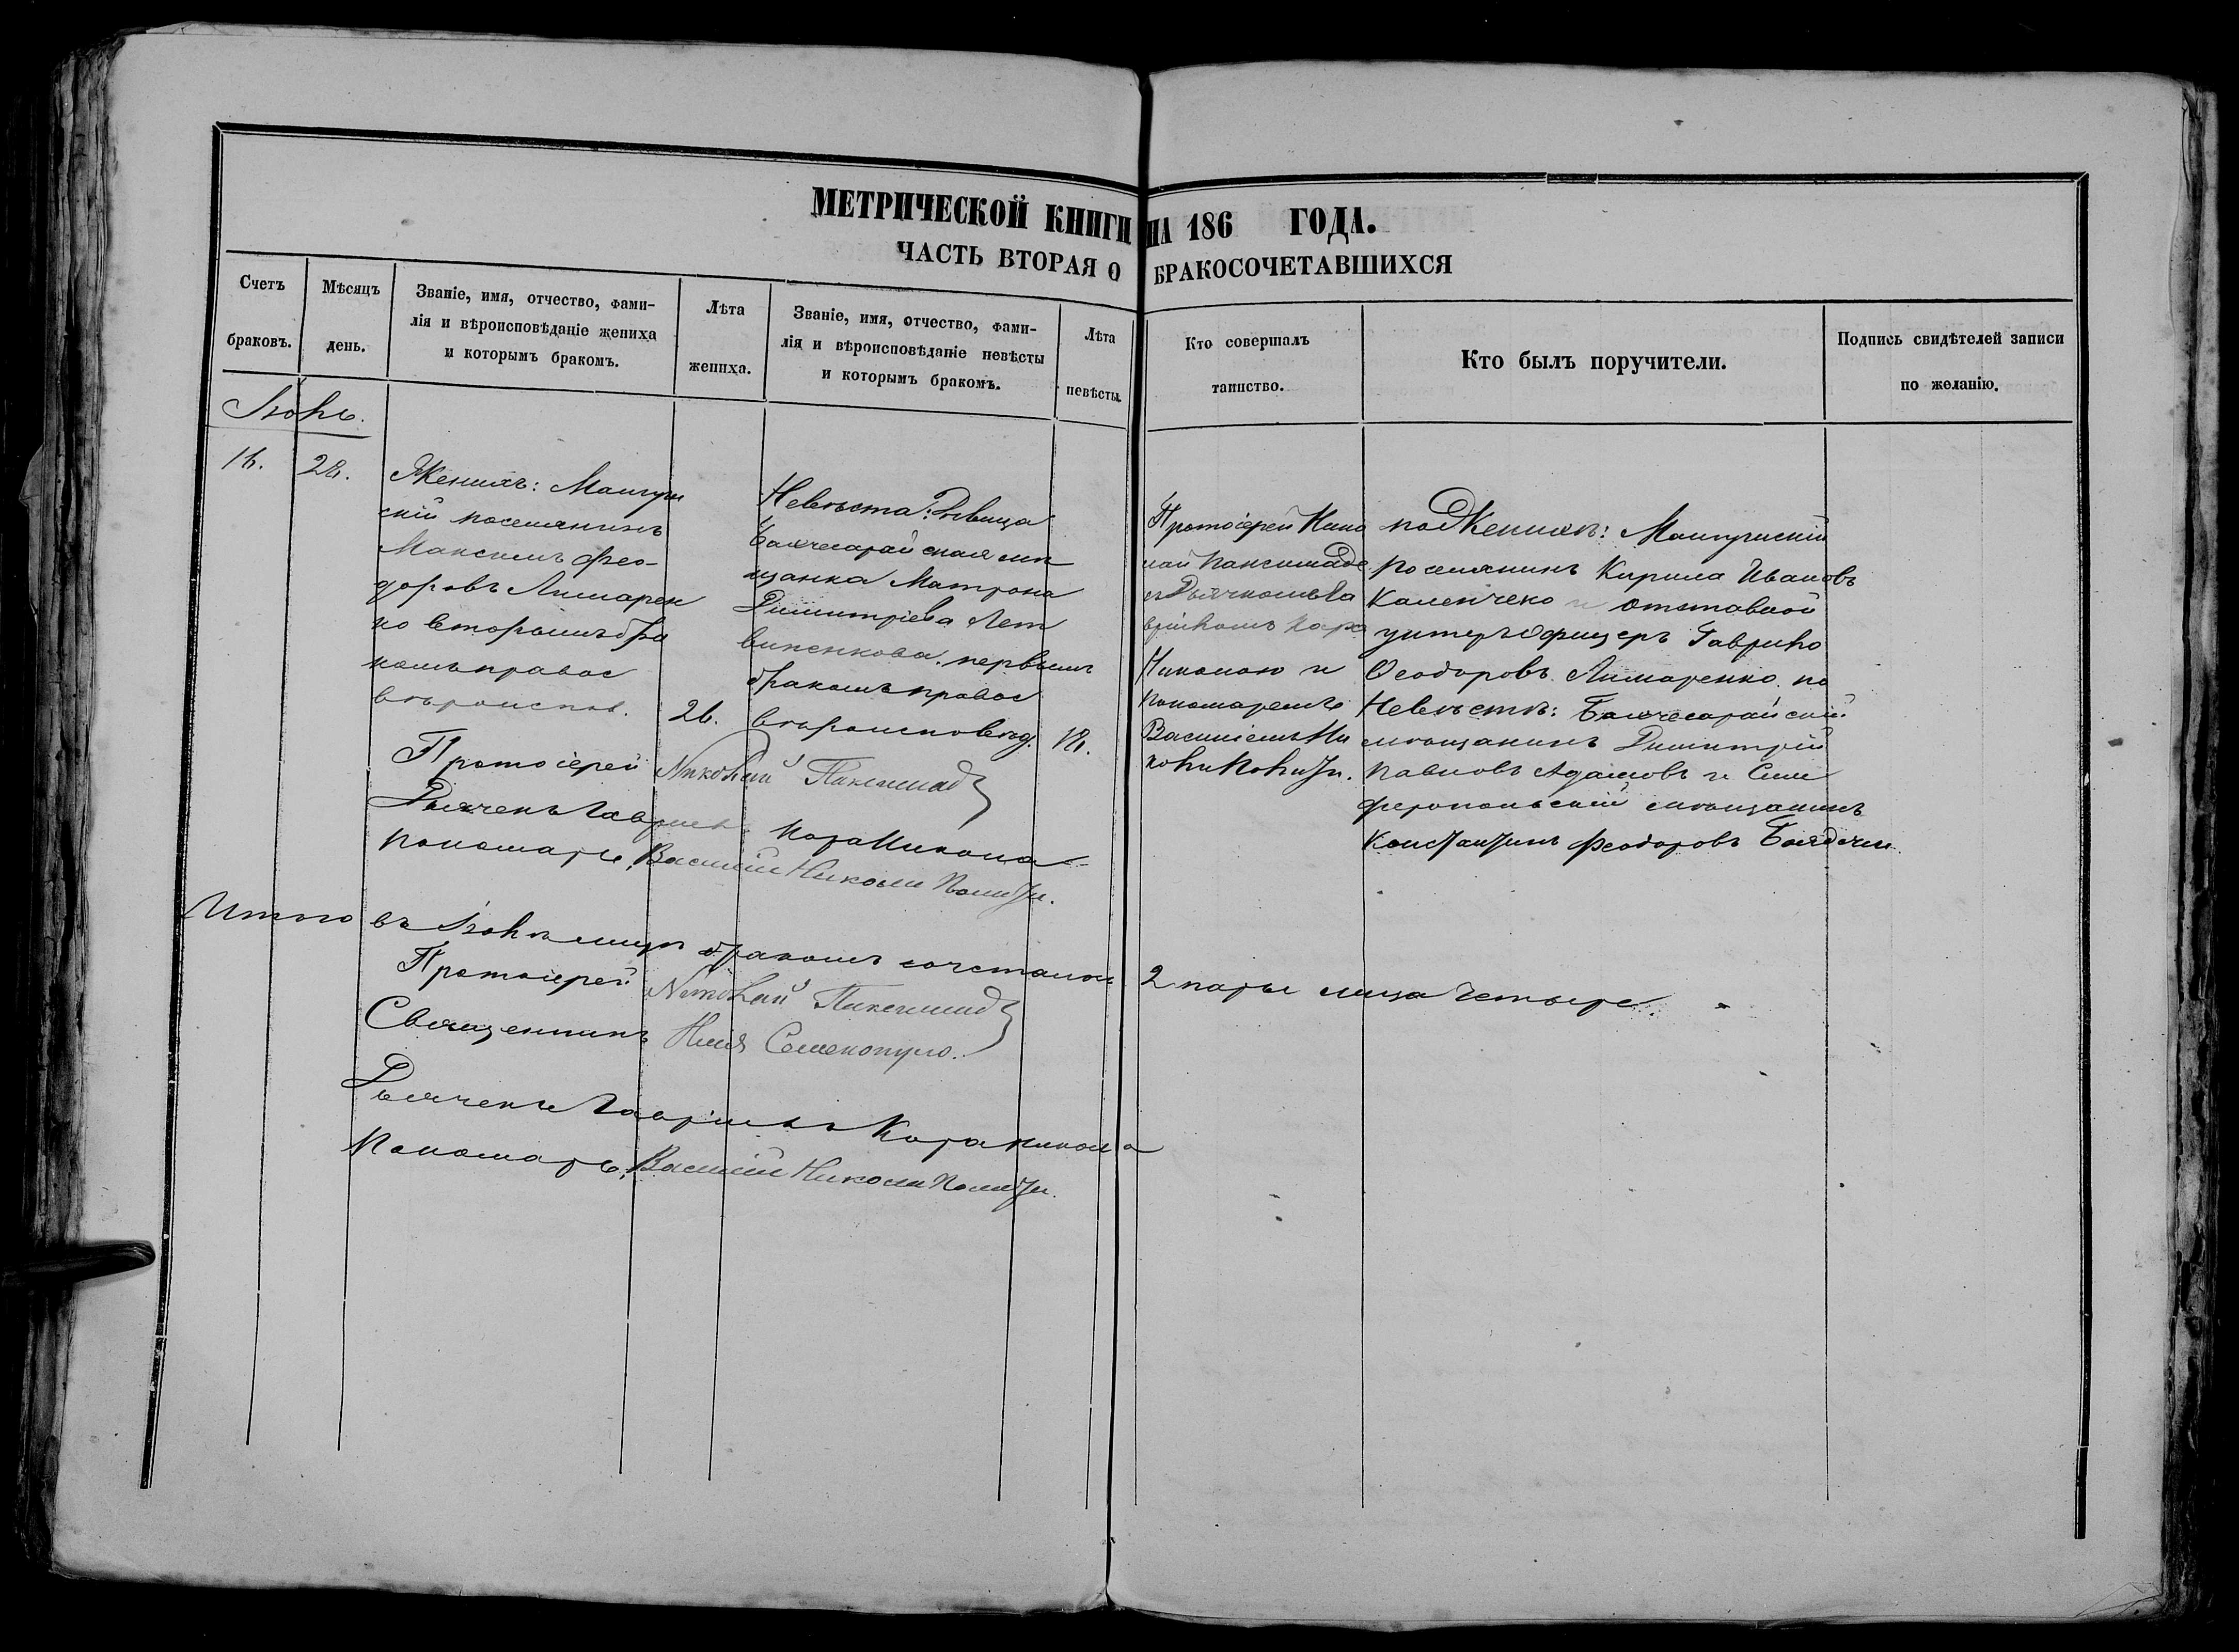 МЕТРИЧЕСКОЙ КНИГИ НА 186 ГОДА.
ЧАСТЬ ВТОРАЯ О БРАКОСОЧЕТАВШИХСЯ
Счетъ браковъ.
Мѣсяцъ день.
Званіе, имя, отчество, фами-
лія и вѣроисповѣданіе жениха
и которымъ бракомъ.
Лѣта жениха.
Званіе, имя, отчество, фами-
лія и вѣроисповѣданіе невѣсты
и которымъ бракомъ.
Лѣта невѣсты.
Кто совершалъ
таинство.
Кто былъ поручители.
Подпись свидѣтелей записи
по желанію.
28.
Женихъ: Мангуш
скій поселянинъ
Максимъ Фео-
доровъ Лимарен
ко вторымъ бра
комъ правос
вѣроиспов.
26.
Невѣста: Дѣвица
Бахчесарайская мѣ
щанка Матрона
Димитріева Лит
виненкова. первымъ
бракомъ правос
вѣроисповѣд.
18.
Протоіерей Нико
лай
съ Дьячкомъ Га
вріиломъ Кара
Николою и
Пономаремъ
Василіемъ Ни
коли Полити.
по Женихѣ: Мангушскій
поселянинъ Кирила Ивановъ
и отставной
унтеръ Офицеръ Гаврило
Ѳеодоровъ Лимаренко. по
Невѣстѣ: Бахчесарайскій
мѣщанинъ Димитрій
Павловъ Адамовъ и Сим
феропольскій мѣщанинъ
Константинъ Феодоровъ
Протоіерей Николай
Дьячекъ Гавріилъ Кара Никола
Пономарь Василій Николи Полити.
Итого въ бракомъ сочетаны 2 пары лица четыре.
Протоіерей Николай
Священникъ Илія
Дьячекъ Гавріилъ Кара Никола
Пономарь Василій Николи Полити.